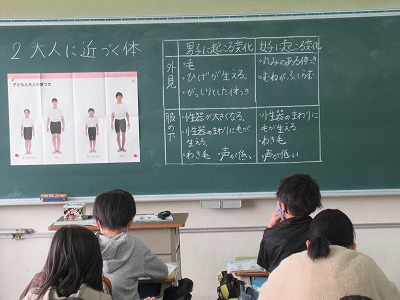 2 大人に近づく体
男子に起こる変化
女子に起こる変化
外見
・毛
・ひげが生える。
・がっしりとした体つき
・丸みのある体つき
・むねがふくらむ
服の下
・性器が大きくなる。
・性器のまわりに毛が
生える。
・わき毛 声が低い
・性器のまわりに
毛が生える
・わき毛
声が低い
子どもと大人の体つき